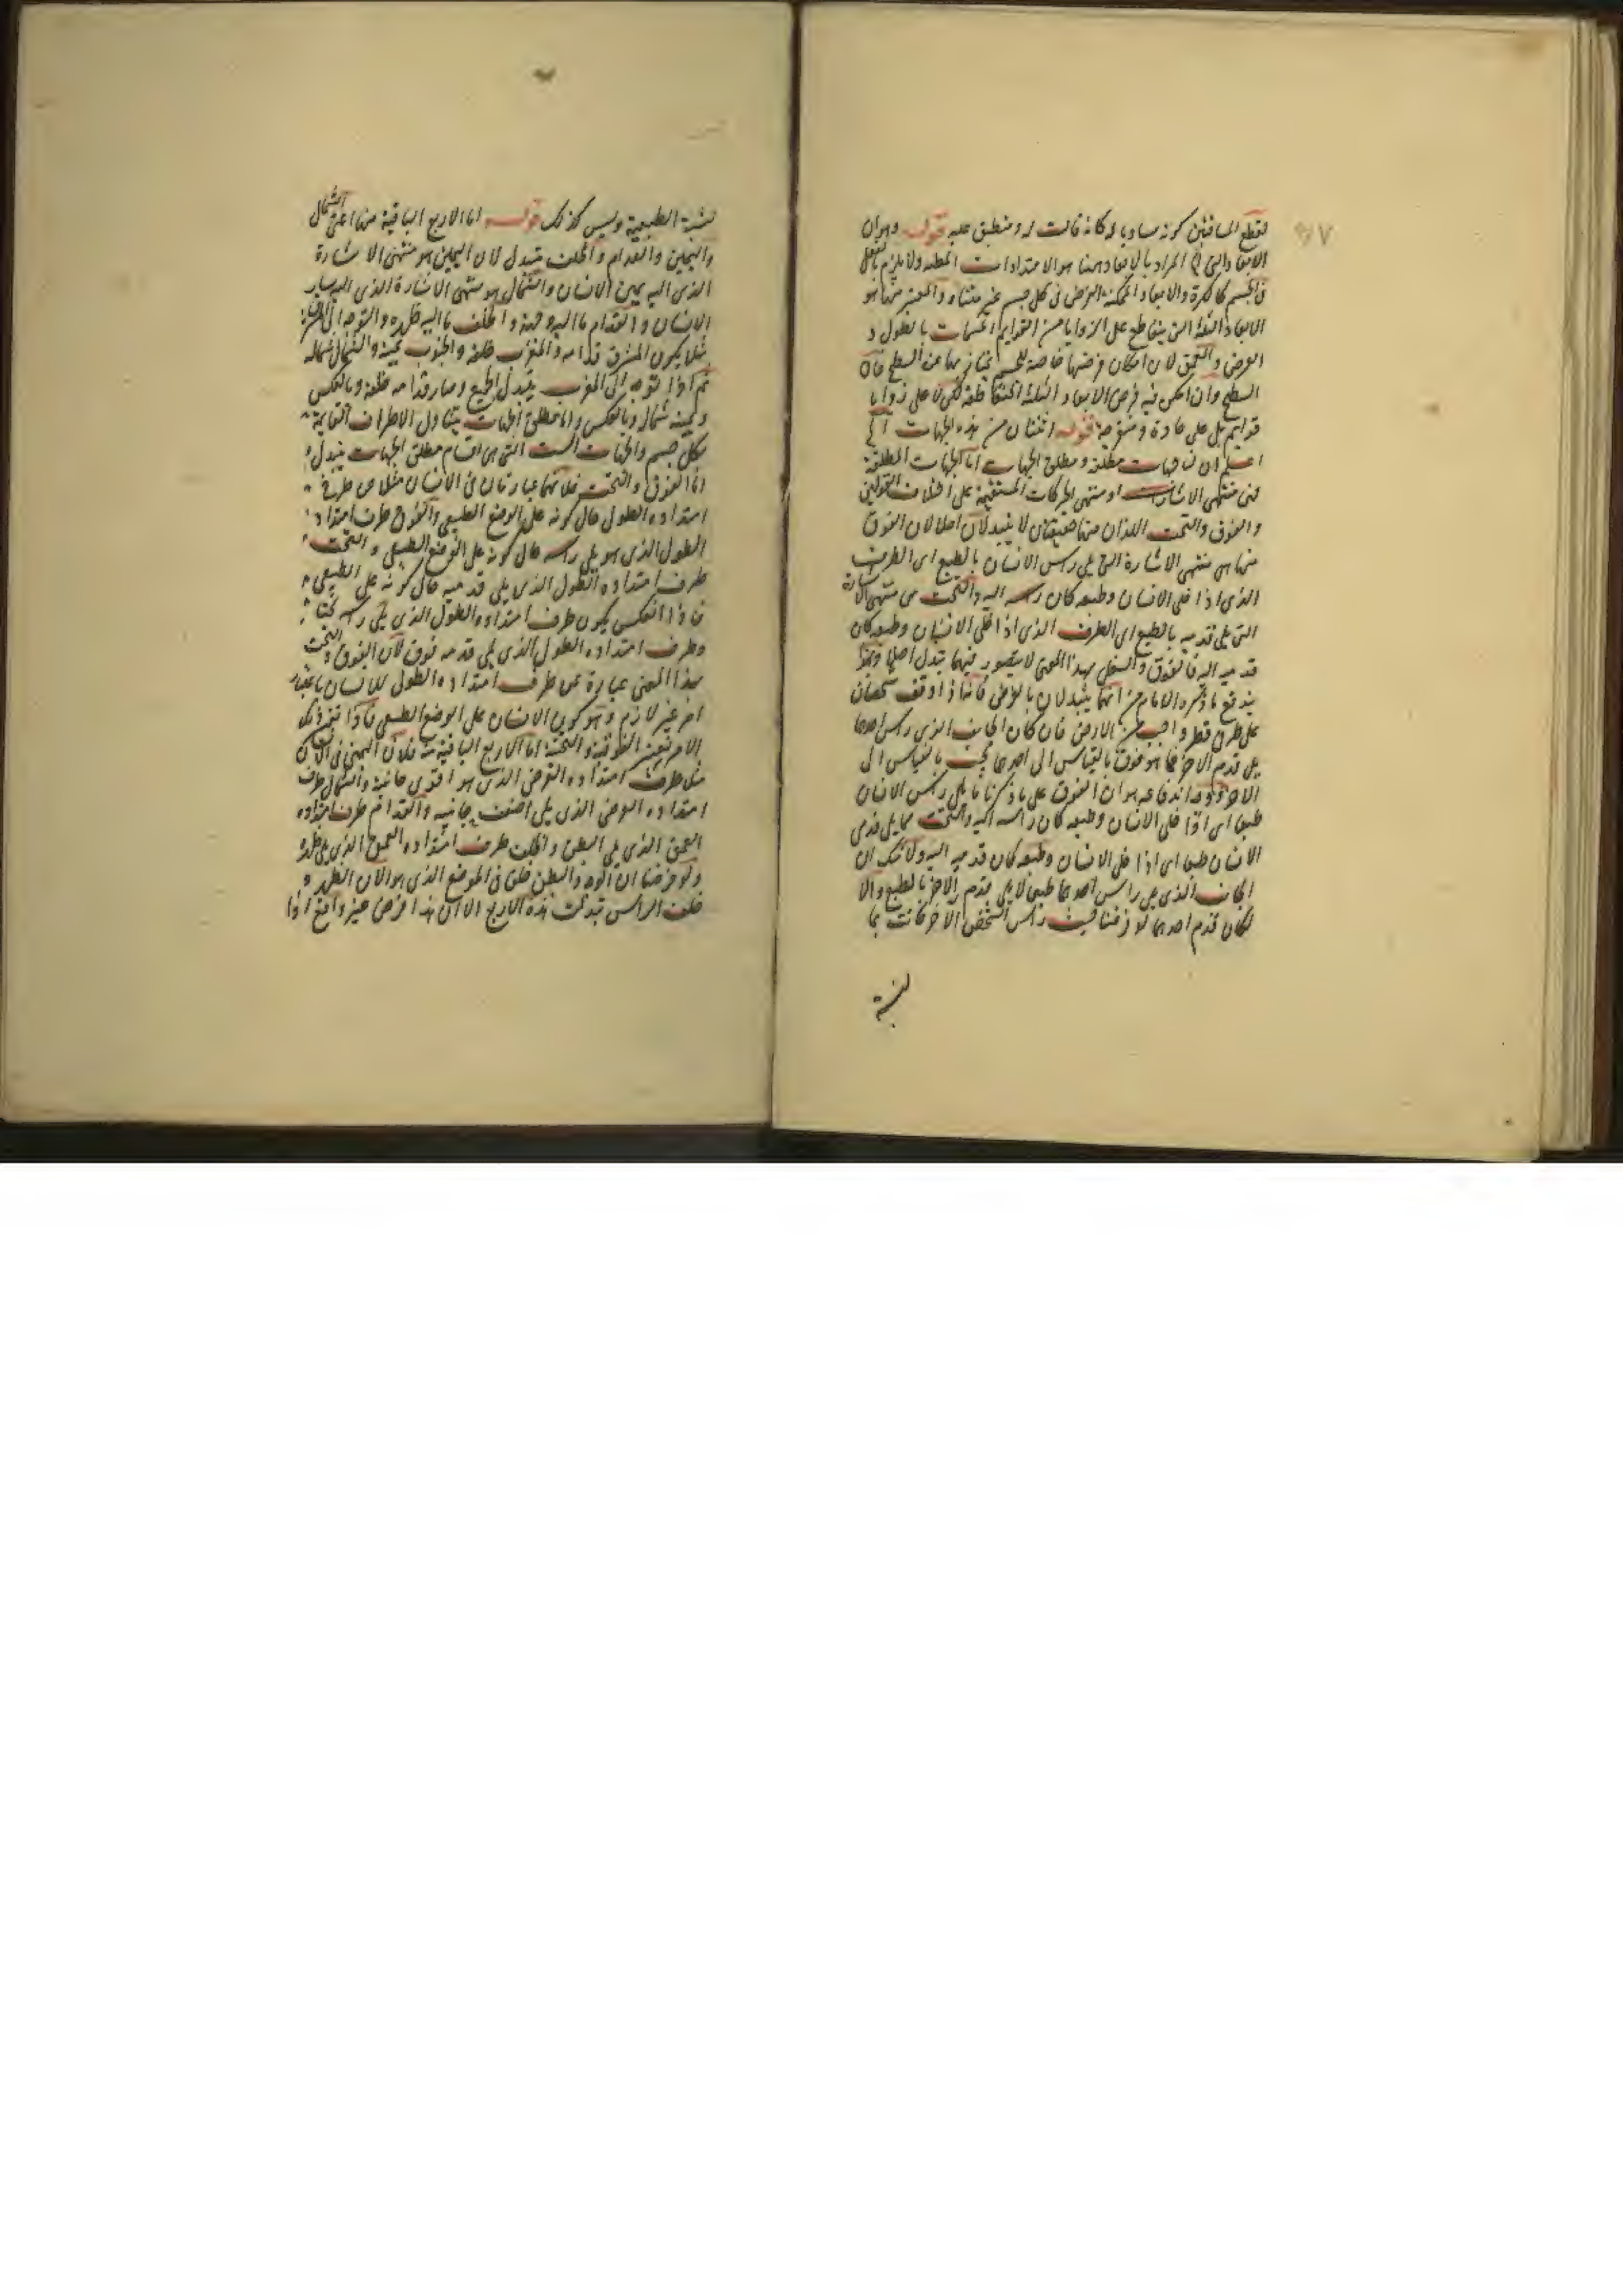 لقطع المسافتين كونه مساويا له كانه قالت له ومنطبق عليه قوله وهو ان
الابعاد التي الخ المراد بالابعاد ههنا هو الامتدادات المطلقة ولا يلزم بالفعل
فى الجسم كالكرة والابعاد الممكنة الفرض فى كل جسم غير متناه والمعتبر منها هو
الابعاد الثلثة التى يتقاطع على الزوايا من القوايم المسمات بالطول و
العرض والعمق لان امكان فرضها خاصة للجسم يمتاز بها عن السطح فان
السطح وان امكن فيه فرض الابعاد الثلثة المتقاطعة لكن لا على زوايا
قوايم بل على حادة ومنفرجة قوله اثنتان من هذه الجهات الخ
اعلم ان جهات مطلقة ومطلق الجهات اما الجهات المطلقة
فهى منتهى الاشارات او منتهى الحركات المستقيمة على اختلاف القولين
والفوق والتحت اللذان منها حقيقتان لا يتبدلان اصلا لان الفوق
منها هى منتهى الاشارة التى يلى رأس الانسان بالطبع اى الطرف
الذى اذا خلى الانسان وطبعه كان رأسه اليه والتحت هى منتهى الاشارة
التى يلى قدميه بالطبع اى الطرف الذى اذا خلى الانسان وطبعه كان
قدميه اليه فالفوق والسفل بهذا المعنى لا يتصور فيهما تبدل اصلا وبهذا
يندفع ما ذكره الامام من انهما يتبدلان بالعرض فانه اذا وقف شخصان
على طرفى قطر واحد من الارض فان كان الجانب الذى رأس احدهما
يلى قدم الآخر فما هو فوق بالقياس الى احدهما تحت بالقياس الى
الآخر ووجه اندفاعه هو ان الفوق على ما ذكرنا ما يلى رأس الانسان
طبعا اى اذا خلى الانسان وطبعه كان رأسه اليه والتحت ما يلى قدمى
الانسان طبعا اى اذا خلى الانسان وطبعه كان قدميه اليه ولا شك ان
الجانب الذى يلى رأس احدهما طبعا لا يلى قدم الآخر بالطبع والا
لكان قدم احدهما لو فرضنا حيث رأس الشخص الآخر كانت بها
لنسبة
لنسبة الطبيعية وليس كذلك قوله اما الاربع الباقية منها اعنى الشمال
واليمين والقدام والخلف يتبدل لان اليمين هو منتهى الاشارة
الذى اليه يمين الانسان والشمال هو منتهى الاشارة الذى اليه يسار
الانسان والقدام ما اليه وجهه والخلف ما اليه ظهره والتوجه الى المشرق
مثلا يكون المشرق قدامه والمغرب خلفه والجنوب يمينه والشمال شماله
ثم اذا توجه الى المغرب يتبدل الجميع وصار قدامه خلفه وبالعكس
ويمينه شماله وبالعكس واما مطلق الجهات يتناول الاطراف القايمة
بكل جسم والجهات الست التى هى اقسام مطلق الجهات يتبدل
اما الفوق والتحت فلانهما عبارتان فى الانسان مثلا عن طرفى
امتداده الطول حال كونه على الوضع الطبيعى والفوق طرف امتداده
الطول الذى هو يلى رأسه حال كونه على الوضع الطبيعى والتحت
طرف امتداده الطول الذى يلى قدميه حال كونه على الطبيعى
فاذا انعكس يكون طرف امتداده الطول الذى يلى رأسه تحتا
وطرف امتداده الطول الذى يلى قدمه فوق لان الفوق والتحت
بهذا المعنى عبارة عن طرف امتداده الطول للانسان باعتبار
امر غير لازم وهو كون الانسان على الوضع الطبيعى فاذا تغير ذلك
الامر تغيرت الفوقية والتحتية اما الاربع الباقية منه فلان اليمين فى الانسان
مثلا طرف امتداده العرض الذى هو اقوى جانبيه والشمال طرف
امتداده العرض الذى يلى اضعف جانبيه والقدام طرف امتداده
العمق الذى يلى البطن والخلف طرف امتداده العمق الذى يلى ظهره
ولو فرضنا ان الوجه والبطن خلق فى الموضع الذى هو الان الظهر و
خلف الرأس تبدلت هذه الاربع الا ان هذا فرض غير واقع اذا